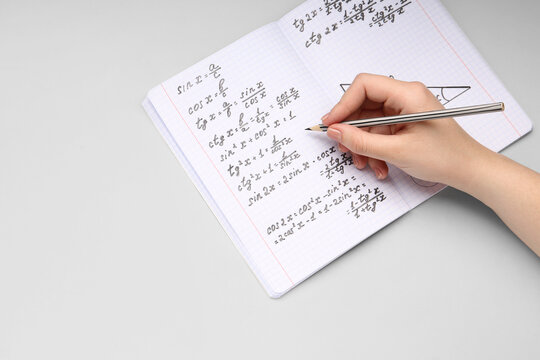 sin x = a/c
cos x = b/c
tg x = a/b = sin x/cos x
ctg x = b/a = 1/tg x = cos x/sin x
sin² x + cos² x = 1
tg² x + 1 = 1/cos² x
ctg² x + 1 = 1/sin² x
sin 2x = 2 sin x · cos x
cos 2x = cos² x - sin² x =
= 2 cos² x - 1 = 1 - 2 sin² x =
= 1 - tg² x/1 + tg² x
tg 2x =
ctg 2x =